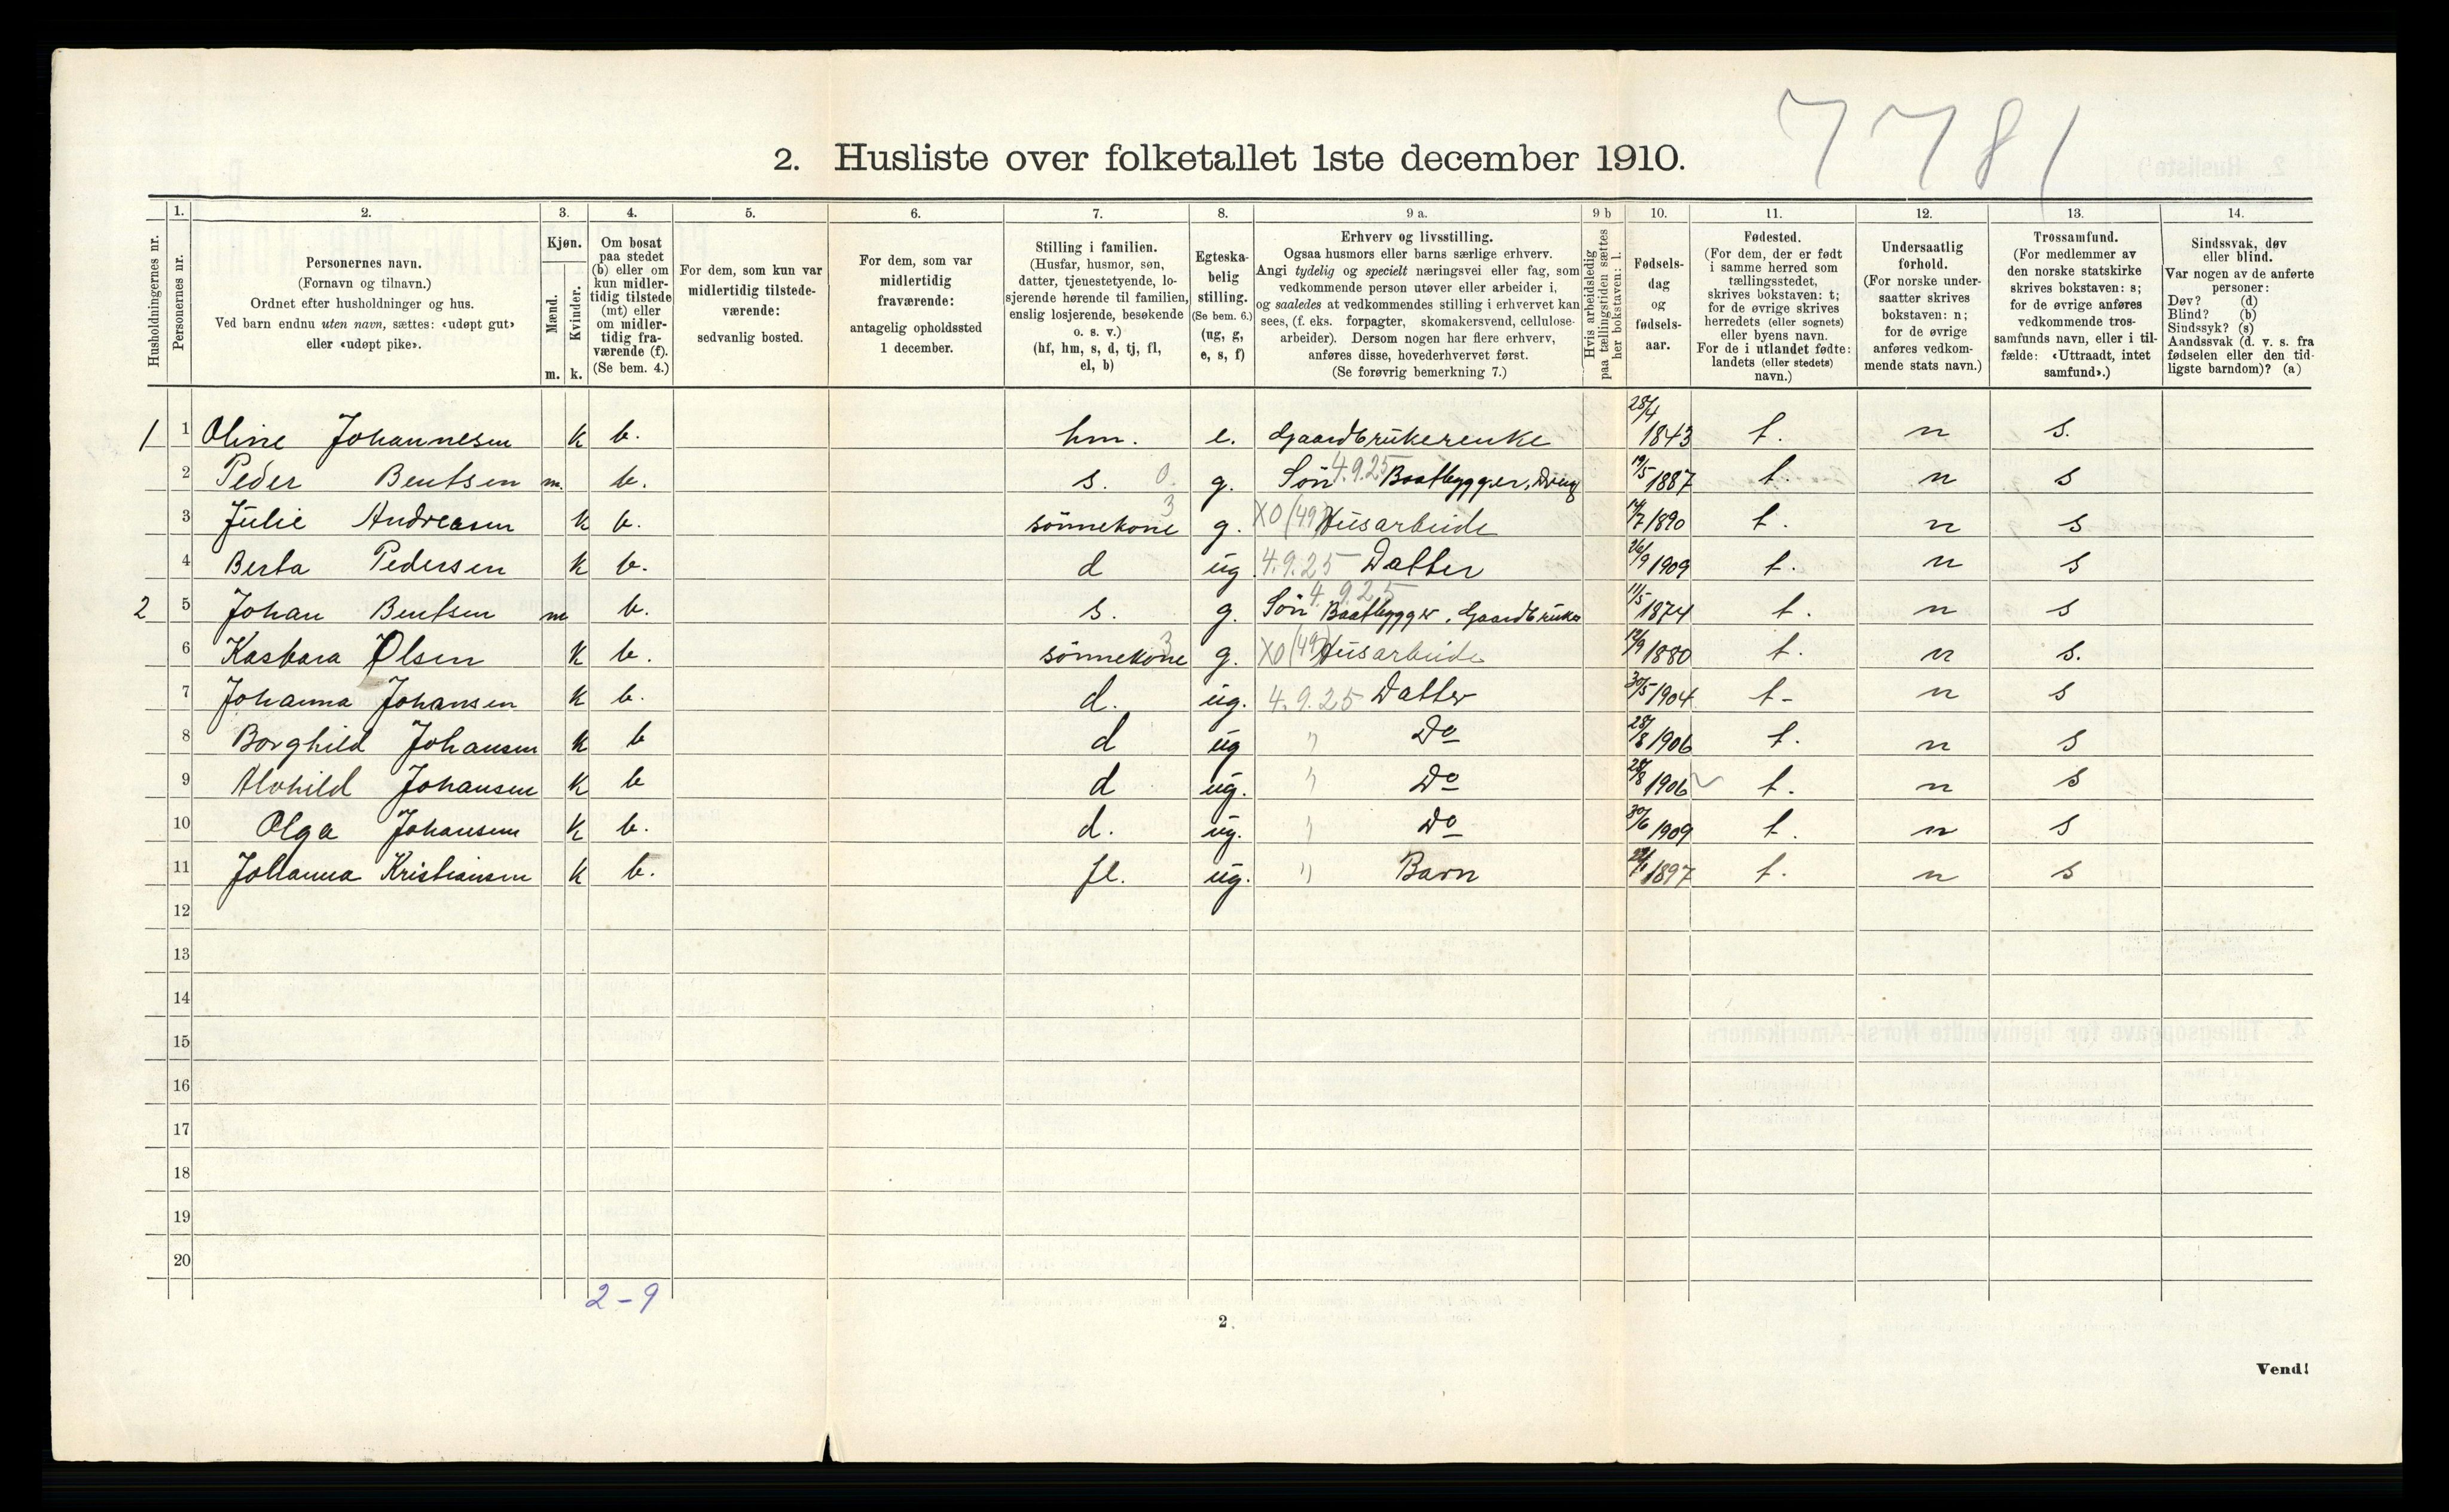 7781
2. Husliste over folketallet 1ste december 1910.
Husholdningernes nr.
1.
Personernes nr.
2.
Personernes navn.
(Fornavn og tilnavn.)
Ordnet efter husholdninger og hus.
Ved barn endnu uten navn, sættes: «udøpt gut»
eller «udøpt pike».
3.
Kjøn.
Mænd.
Kvinder.
m. k.
4.
Om bosat
paa stedet
(b) eller om
kun midler-
tidig tilstede
(mt) eller
om midler-
tidig fra-
værende (f).
(Se bem. 4.)
5.
For dem, som kun var
midlertidig tilstede-
værende:
sedvanlig bosted.
6.
For dem, som var
midlertidig
fraværende:
antagelig opholdssted
1 december.
7.
Stilling i familien.
(Husfar, husmor, søn,
datter, tjenestetyende, lo-
sjerende hørende til familien,
enslig losjerende, besøkende
o. s. v.)
(hf, hm, s, d, tj, fl,
el, b)
8.
Egteska-
belig
stilling.
(Se bem. 6.)
(ug, g,
e, s, f)
9 a.
Erhverv og livsstilling.
Ogsaa husmors eller barns særlige erhverv.
Angi tydelig og specielt næringsvei eller fag, som
vedkommende person utøver eller arbeider i,
og saaledes at vedkommendes stilling i erhvervet kan
sees, (f. eks. forpagter, skomakersvend, cellulose-
arbeider). Dersom nogen har flere erhverv,
anføres disse, hovederhvervet først.
(Se forøvrig bemerkning 7.)
9 b
Hvis arbeidsledig
paa tællingstiden sættes
her bokstaven: l.
10.
Fødsels-
dag
og
fødsels-
aar.
11.
Fødested.
(For dem, der er født
i samme herred som
tællingsstedet,
skrives bokstaven: t;
for de øvrige skrives
herredets (eller sognets)
eller byens navn.
For de i utlandet fødte:
landets (eller stedets)
navn.)
12.
Undersaatlig
forhold.
(For norske under-
saatter skrives
bokstaven: n;
for de øvrige
anføres vedkom-
mende stats navn.)
13.
Trossamfund.
(For medlemmer av
den norske statskirke
skrives bokstaven: s;
for de øvrige anføres
vedkommende tros-
samfunds navn, eller i til-
fælde: «Uttraadt, intet
samfund».)
14.
Sindssvak, døv
eller blind.
Var nogen av de anførte
personer:
Døv? (d)
Blind? (b)
Sindssyk? (s)
Aandssvak (d. v. s. fra
fødselen eller den tid-
ligste barndom)? (a)
1 1 Oline Johannesen k b. hm. e. Gaardbrukerenke 28/4 1843 t. n s.
2 Peder Bentsen m. b. s. 0. g. Søn 4.9.25 Baatbygger, 19/5 1887 t. n s
3 Julie Andreasen k b. sönnekone 3 g. XO (49) Husarbeide 14/7 1890 t. n s
4 Berta Pedersen k b. d ug. 4.9.25 Datter 26/9 1909 t. n s
2 5 Johan Bentsen m b. s. g. Søn 4.9.25 Baatbygger, Gaardbruker 11/5 1874 t. n s
6 Kasbara Olsen k b. sönnekone 3 g. XO (49) Husarbeide 12/9 1880 t. n s.
7 Johanna Johansen k b. d. ug. 4.9.25 Datter 30/5 1904 t- n s
8 Borghild Johansen k b d ug " Do 28/8 1906 t. n s
9 Alvhild Johansen k b d ug. " Do 28/8 1906 t. n s
10 Olga Johansen k b. d. ug. " Do 30/6 1909 t. n s
11 Johanna Kristiansen k b. fl. ug. " Barn 1897 t. n s
12
13
14
15
16
17
18
19
20
2-9
2
Vend!